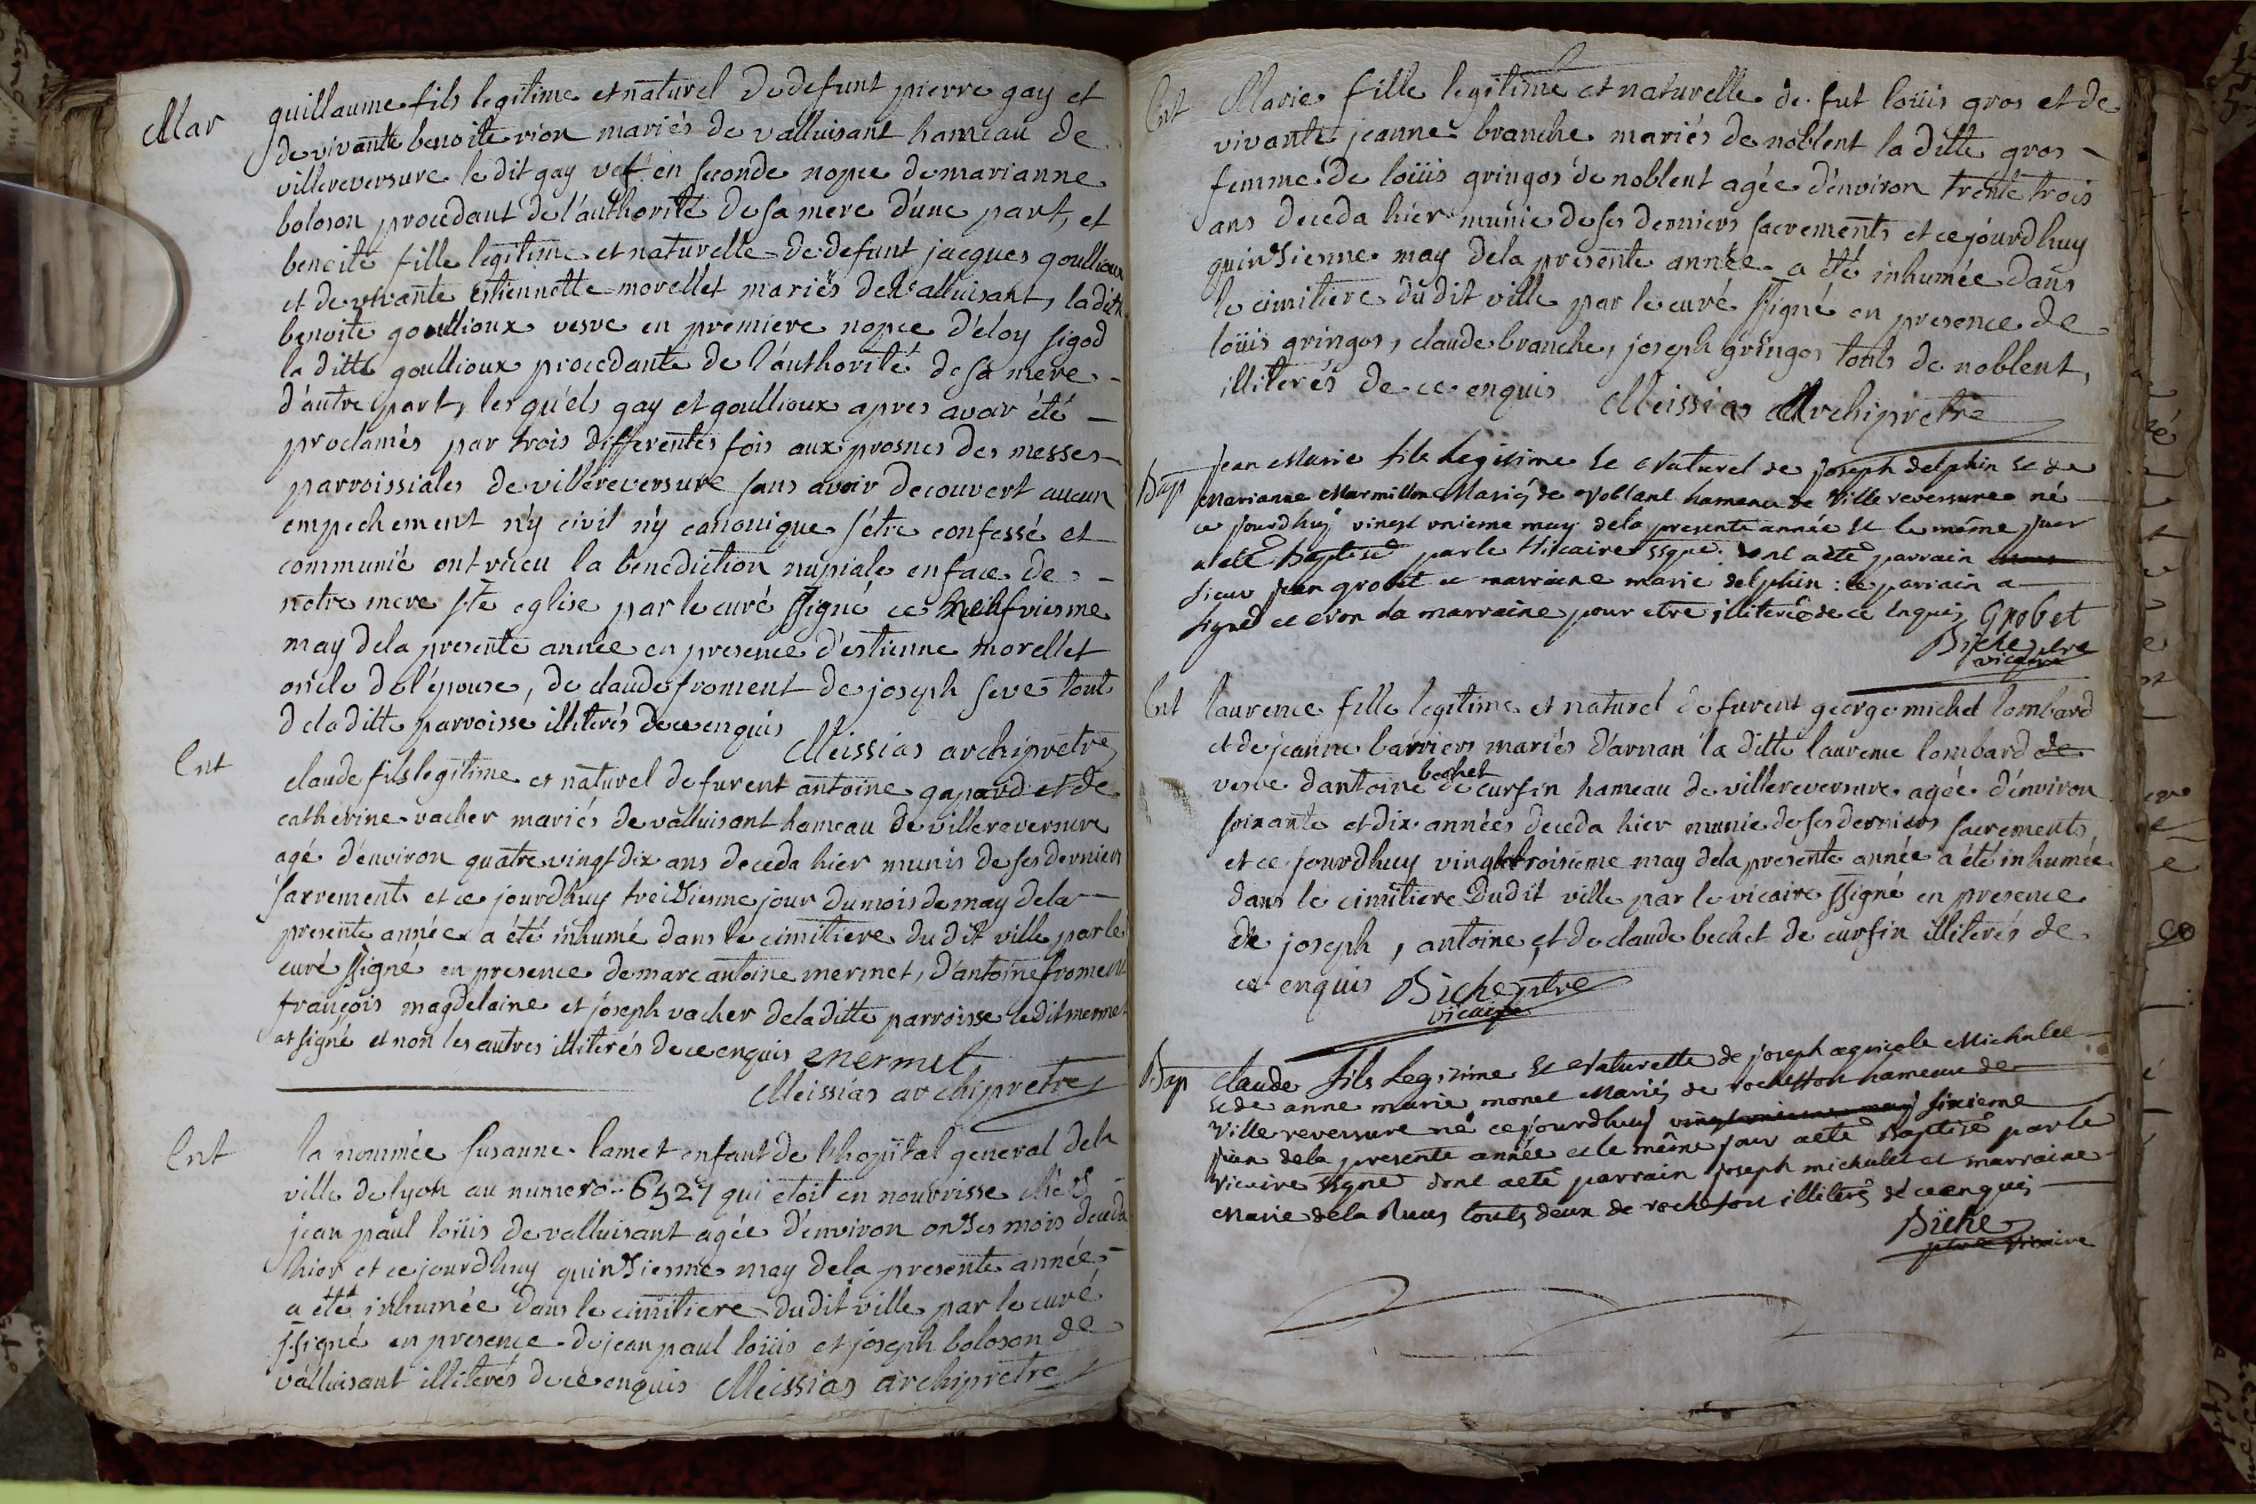 Mar
guillaume fils legitime et naturel de defunt pierre gay et
de vivante benoite rion mariés de valluisant hameau de
villereversure le dit gay vef en seconde nopce de marianne
boloson procedant de l'authorité de sa mere d'une part, et
benoite fille legitime et naturelle de defunt jacques goullioux
et de vivante estiennette morellet mariés de valluisant, la ditte
benoite goullioux vesve en premiere nopce d'eloy sigod
la ditte goullioux procedante de l'authorité de sa mere
d'autre part, les quéls gay et goullioux apres avoir été
proclamés par trois differentes fois aux prosnes des messes
parroissiales de villereversure sans avoir decouvert aucun
empechement n'y civil n'y canonique s'étre confessé et
communié ont recu la benediction nupiale en face de
notre mere ste eglise par le curé ssigné ce neufviesme
may de la presente année en presence d'estienne morellet
oncle de l'épouse, de claude froment de joseph seve tout
de la ditte parroisse illiterés de ce enquis
Meissias archiprétre
Ent
claude fils legitime et naturel de furent antoine gapard et de
catherine vacher mariés de valluisant hameau de villereversure
agé d'environ quatre vingt dix ans deceda hier munis de ses derniers
sacrements et ce jourdhuy treisienne jour du mois de may de la
presente année a été inhumé dans le cimitiere du dit ville par le
curé ssigné en presence de marc antoine mermet, d'antoine froment
françois magdelaine et joseph vacher de la ditte parroisse le dit mermet
at signé et non les autres illiterés de ce enquis mermet
Meissias archipretre
Ent
la nommée susanne lamet enfant de l'hopital general de la
ville de lyon au numero 6527 qui étoit en nourrisse chés
jean paul loüis de valluisant agée d'environ onses mois deceda
hier et ce jourdhuy quinsiesme may de la presente année
a été inhumée dans le cimitiere du dit ville par le curé
ssigné en presence de jean paul loüis et joseph boloson de
valluisant illiterés de ce enquis Meissias archiprétre
Ent
Marie fille legitime et naturelle de fut loüis gros et de
vivante jeanne branche mariés de noblent la ditte gros
femme de loüis gringos de noblent agée d'environ trente trois
ans deceda hier munie de ses derniers sacrements et ce jourdhuy
quinsienne may de la presente année a été inhumée dans
le cimitiere du dit ville par le curé ssigné en presence de
loüis gringos, claude branche, joseph gringos touts de noblent,
illiterés de ce enquis Meissias Archiprétre
Bap
jean Marie fils Legitime et Naturel de joseph delphin et de
Marianne Marmillon Mariés de Noblant hameau de Villereversure né
ce jourdhuy vingt unieme may de la presente année et le même jour
a eté Baptisé par le Vicaire ssigné. dont a eté parrain
sieur jean grobet et marraine marie delphin : le parrain a
signé et non la marraine pour etre illiterée de ce Enquis Grobet
Diche ptre
vicaire
Ent
laurence fille legitime et naturel de furent george michel lombard
et de jeanne barriers mariés d'arnan la ditte laurence lombard de
vesve dantoine bechet de cursin hameau de villereversure agée d'énviron
soixante et dix années deceda hier munie de ses derniers sacrements,
et ce jourdhuy vingt troisieme may de la presente année a été inhumée
dans le cimitiere du dit ville par le vicaire ssigné en presence
de joseph, antoine, et de claude bechet de cursin illiterés de
ce enquis Diche ptre
vicaire
Bap
Claude fils Legitime Et Naturelle de joseph agricole Michalet
et de anne marie monet Mariés de rochefort hameau de
Villereversure né ce jourdhuy vingt unieme may sixieme
juin de la presente année et le même jour a eté Baptisé par le
Vicaire ssigné dont a eté parrain joseph michalet et marraine
Marie dela Rues touts deux de rochefort illiterés de ce enquis
Diche
ptre Vicaire